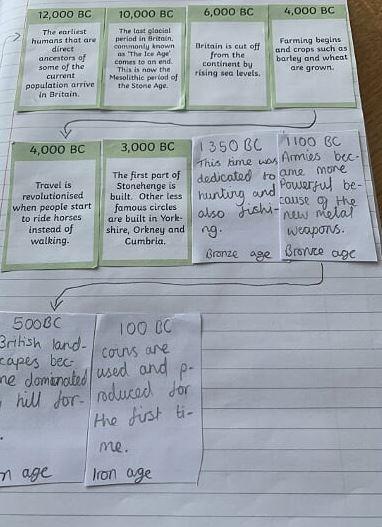 12,000 BC
The earliest
humans that are
direct
ancestors of
some of the
current
population arrive
in Britain.
10,000 BC
The last glacial
period in Britain,
commonly known
as 'The Ice Age'
comes to an end.
This is now the
Mesolithic period of
the Stone Age.
6,000 BC
Britain is cut off
from the
continent by
rising sea levels.
4,000 BC
Farming begins
and crops such as
barley and wheat
are grown.
4,000 BC
Travel is
revolutionised
when people start
to ride horses
instead of
walking.
3,000 BC
The first part of
Stonehenge is
built. Other less
famous circles
are built in York-
shire, Orkney and
Cumbria.
1350 BC
This time was
dedicated to
hunting and
also fishi-
ng.
Bronze age
1100 BC
Armies bec-
ame more
Powerful be-
cause of the
new metal
weapons.
Bronze age
500BC
British land-
capes bec-
me dominated
hill for-
n age
100 BC
coins are
used and p-
roduced for
the first ti-
me.
Iron age